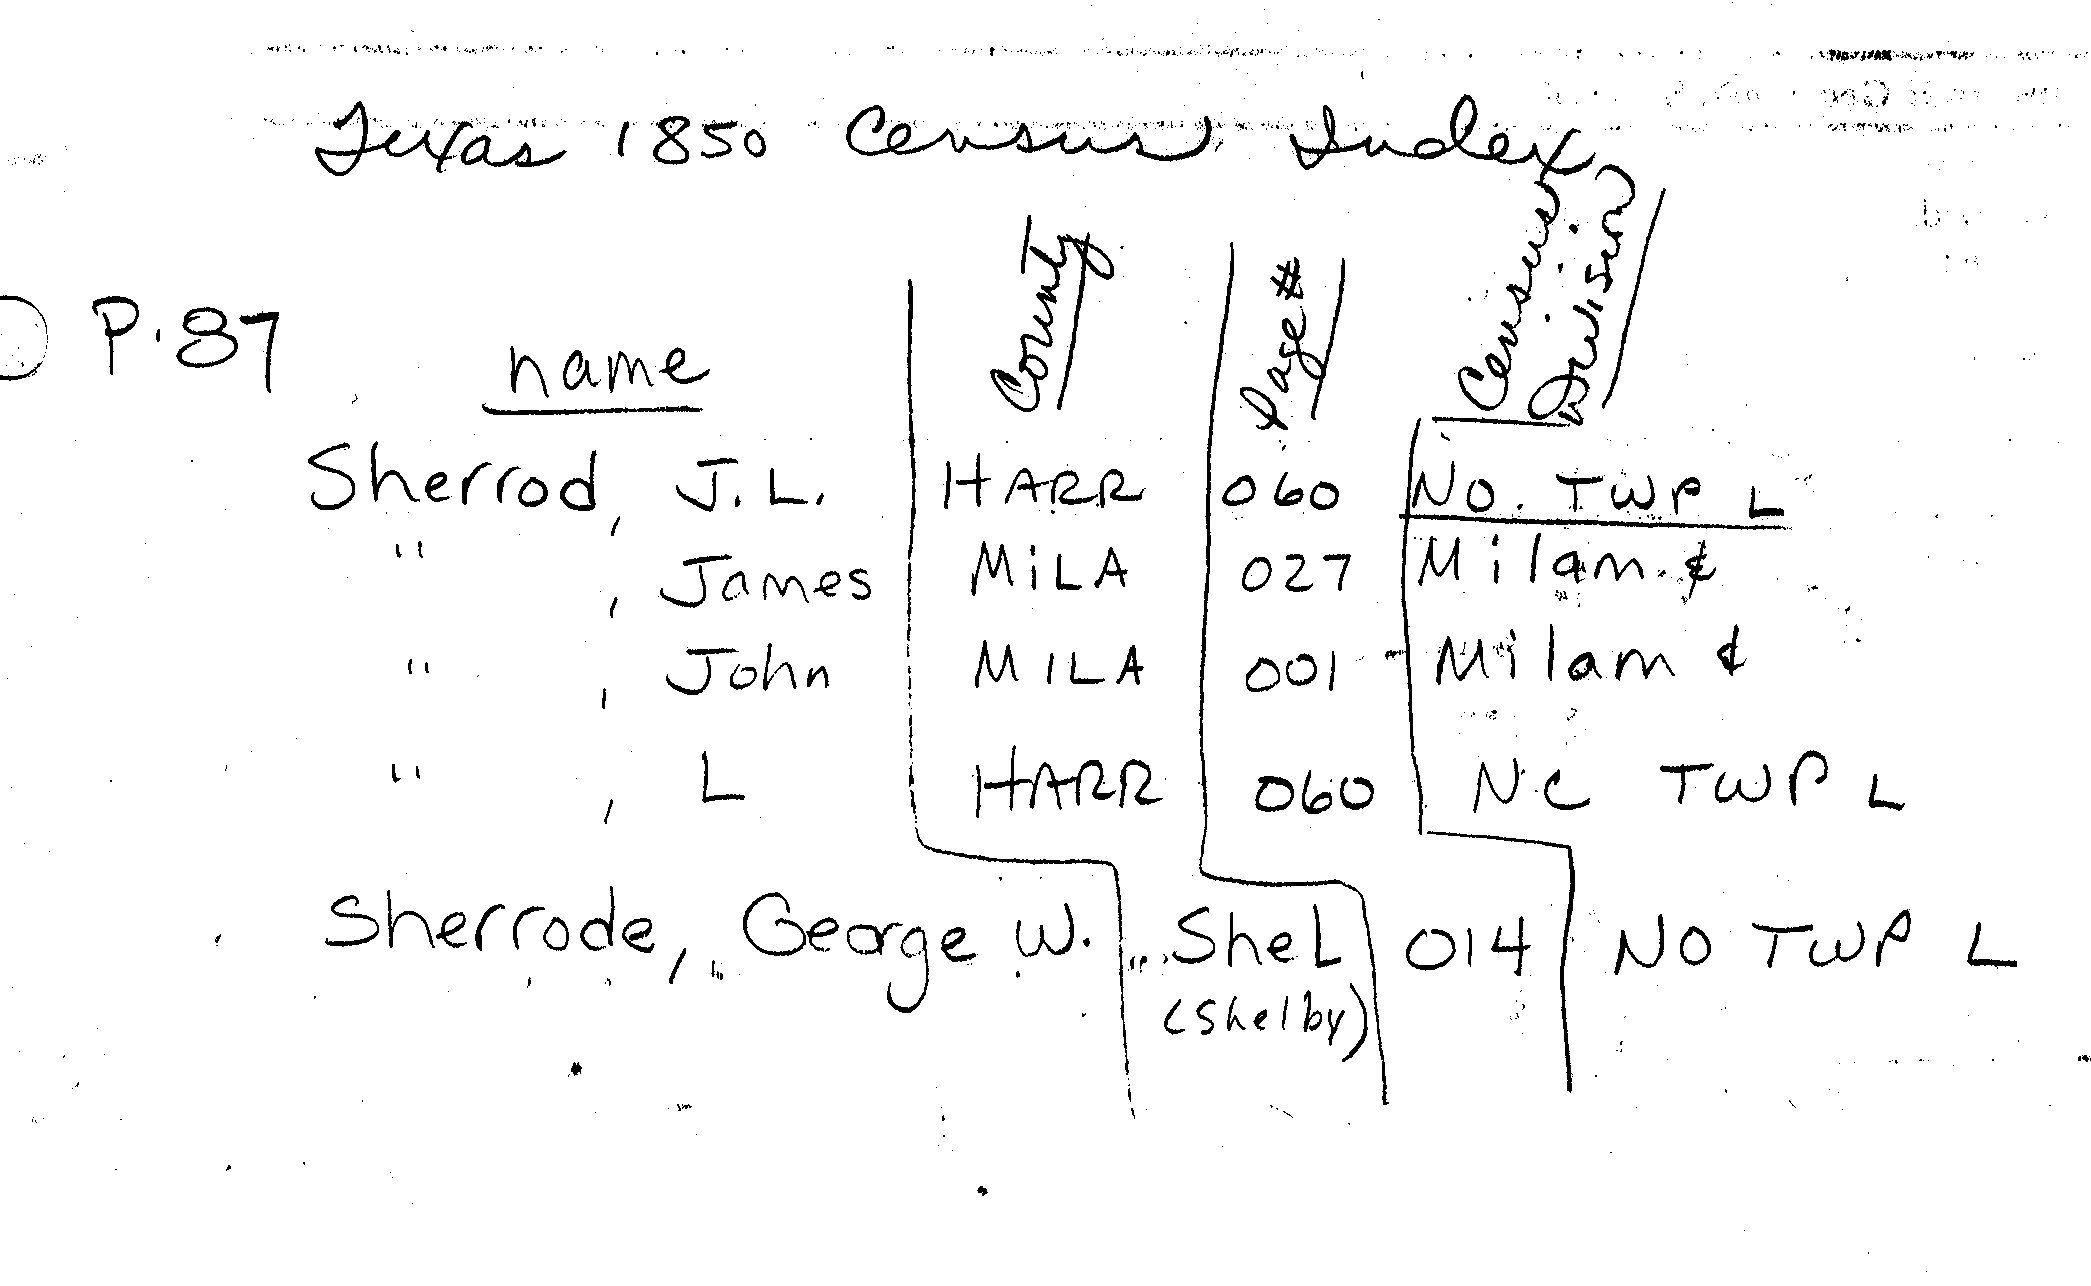 Texas 1850 Census Index
P. 87 name County Page# Census Division
Sherrod, J. L. HARR 060 NO. TWP L
" , James MiLA 027 Milam &
" , John MILA 001 Milam &
" , L HARR 060 NC TWP L
Sherrode, George W. SheL 014 NO TWP L
(Shelby)